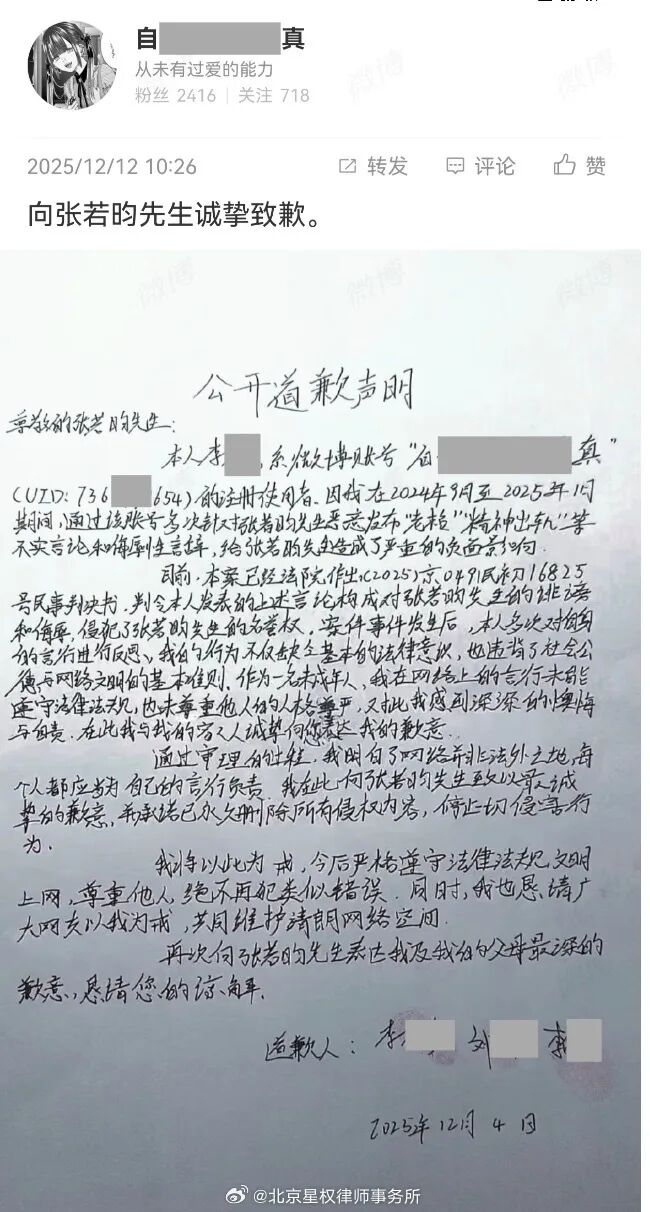 自 真
从未有过爱的能力
粉丝 2416 | 关注 718
2025/12/12 10:26 转发 评论 赞
向张若昀先生诚挚致歉。
公开道歉声明
尊敬的张若昀先生:
本人李 ,系微博账号“自 真”
(UID:736 654)的注册使用者。因我在2024年9月至2025年1月
期间,通过该账号多次针对张若昀先生恶意发布“老枪”“精神出轨”等
不实言论和侮辱性言辞,给张若昀先生造成了严重的负面影响。
目前,本案已经法院作出(2025)京0491民初16825
号民事判决书,判令本人发表的上述言论构成对张若昀先生的诽谤
和侮辱,侵犯了张若昀先生的名誉权。案件事件发生后,本人多次对自身
的言行进行反思,我的行为不仅缺乏基本的法律意识,也违背了社会公
德与网络文明的基本准则。作为一名未成年人,我在网络上的言行未能
遵守法律法规,也未尊重他人的人格尊严,对此我感到深深的懊悔
与自责。在此我与我的家人诚挚向您表达我的歉意。
通过审理的过程,我明白了网络并非法外之地,每
个人都应当为自己的言行负责。我在此向张若昀先生致以最诚
挚的歉意,并承诺已永久删除所有侵权内容,停止一切侵害行
为。
我将以此为戒,今后严格遵守法律法规,文明
上网,尊重他人,绝不再犯类似错误。同时,我也恳请广
大网友以我为戒,共同维护清朗网络空间。
再次向张若昀先生表达我及我的父母最深的
歉意,恳请您的谅解。
道歉人: 李 刘 李
2025年12月4日
@北京星权律师事务所
微博